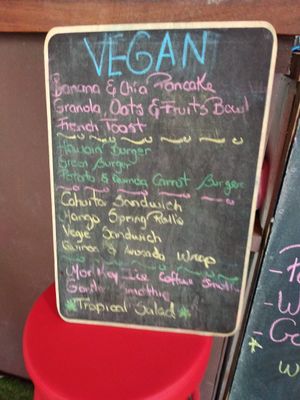 VEGAN
Banana & Chia Pancake
Granola, Oats & Fruits Bowl
French Toast
Hawain Burger
Green Burger
Potato & Quinoa Carrot Burger
Cahuita Sandwich
Mango Spring Rolls
Vegie Sandwich
Quinoa & Avocado Wrap
Ice Coffee
Smothie
Tropical Salad